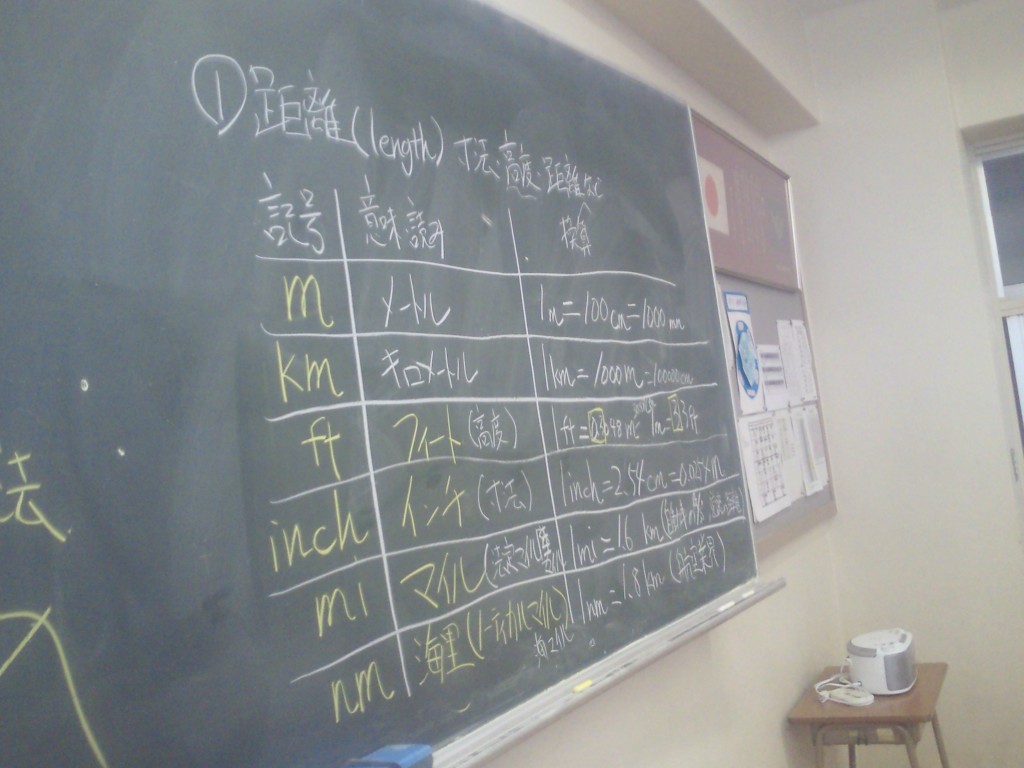 ①距離(length) 寸法・高度・距離など
記号 意味・読み 換算
m メートル 1m=100cm=1000mm
km キロメートル 1km=1000m=100000cm
ft フィート(高度) 1ft=0.3048m 1m=3.3ft
inch インチ(寸法) 1inch=2.54cm=0.0254m
mi マイル 1mi=1.6km
nm 海里(ノーティカルマイル) 1nm=1.8km
法